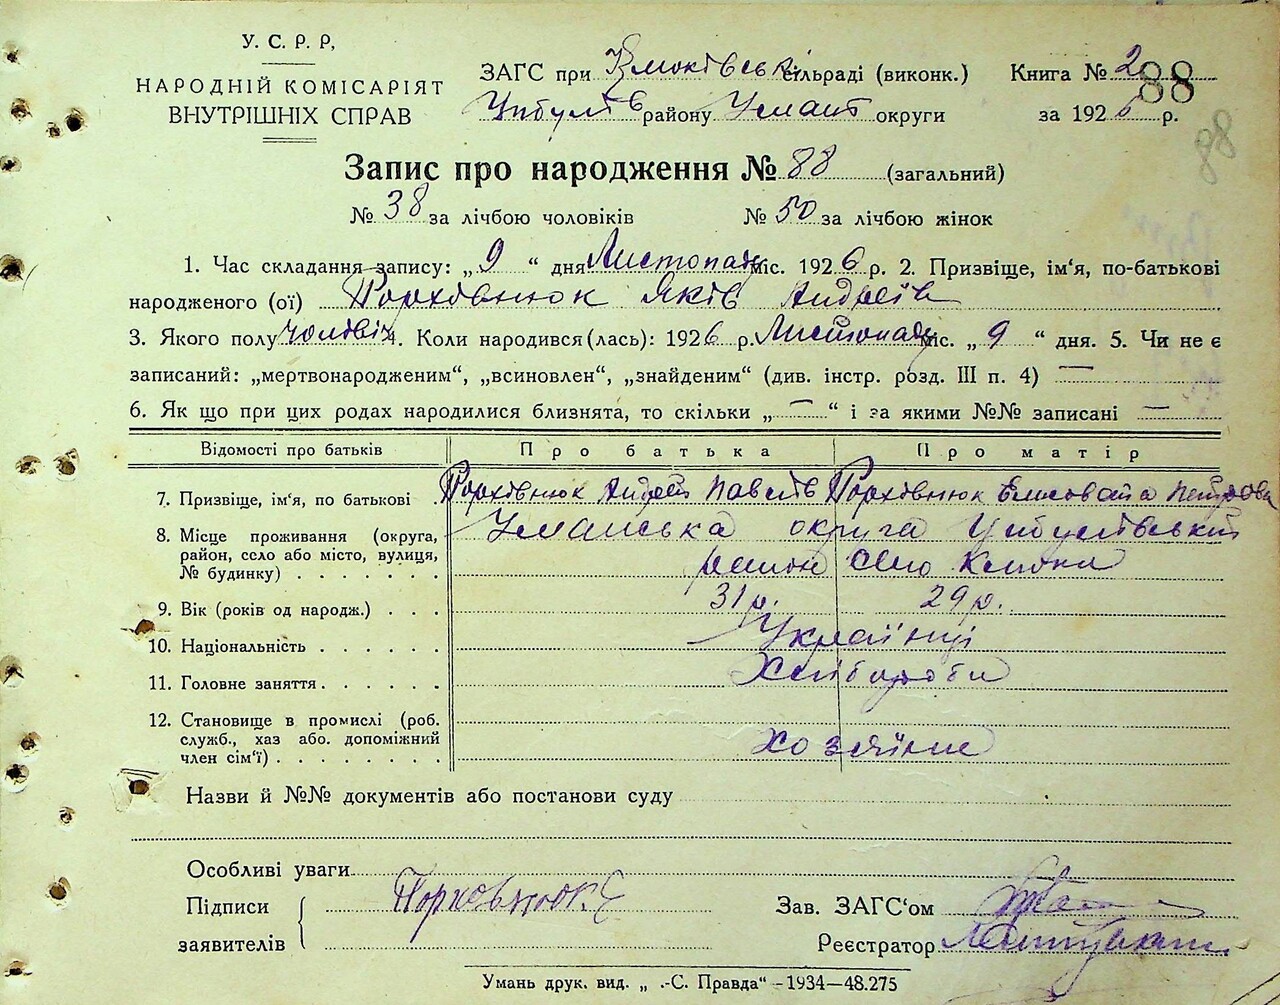 У. С. Р. Р,
НАРОДНІЙ КОМІСАРІЯТ
ВНУТРІШНІХ СПРАВ
ЗАГС при сільраді (виконк.) Книга № 2
88
району Уман округи за 1926 р.
88
Запис про народження № 88 (загальний)
№ 38 за лічбою чоловіків № 50 за лічбою жінок
1. Час складання запису: „ 9 “ дня Листопад міс. 1926 р. 2. Призвіще, ім‘я, по-батькові
народженого (ої) Порховнюк Яків Андреїв
3. Якого полу чоловіч 4. Коли народився (лась): 1926 р. Листопад міс. „ 9 “ дня. 5. Чи не є
записаний: „мертвонародженим“, „всиновлен“, „знайденим“ (див. інстр. розд. III п. 4) —
6. Як що при цих родах народилися близнята, то скільки „ — “ і за якими №№ записані —
Відомості про батьків Про батька Про матір
7. Призвіще, ім‘я, по батькові Порховнюк Андрей Павлів Порховнюк Елисовата Петрова
8. Місце проживання (округа, Уманська округа
район, село або місто, вулиця,
№ будинку) район село
9. Вік (років од народж.) 31 р. 29 р.
10. Національність Українці
11. Головне заняття Хлібороби
12. Становище в промислі (роб.
служб., хаз або. допоміжний Хозяїни
член сім‘ї)
Назви й №№ документів або постанови суду
Особливі уваги
Підписи Порховнюк Є Зав. ЗАГС‘ом
заявителів Реєстратор
Умань друк. вид. „ .-С. Правда“ -1934—48.275